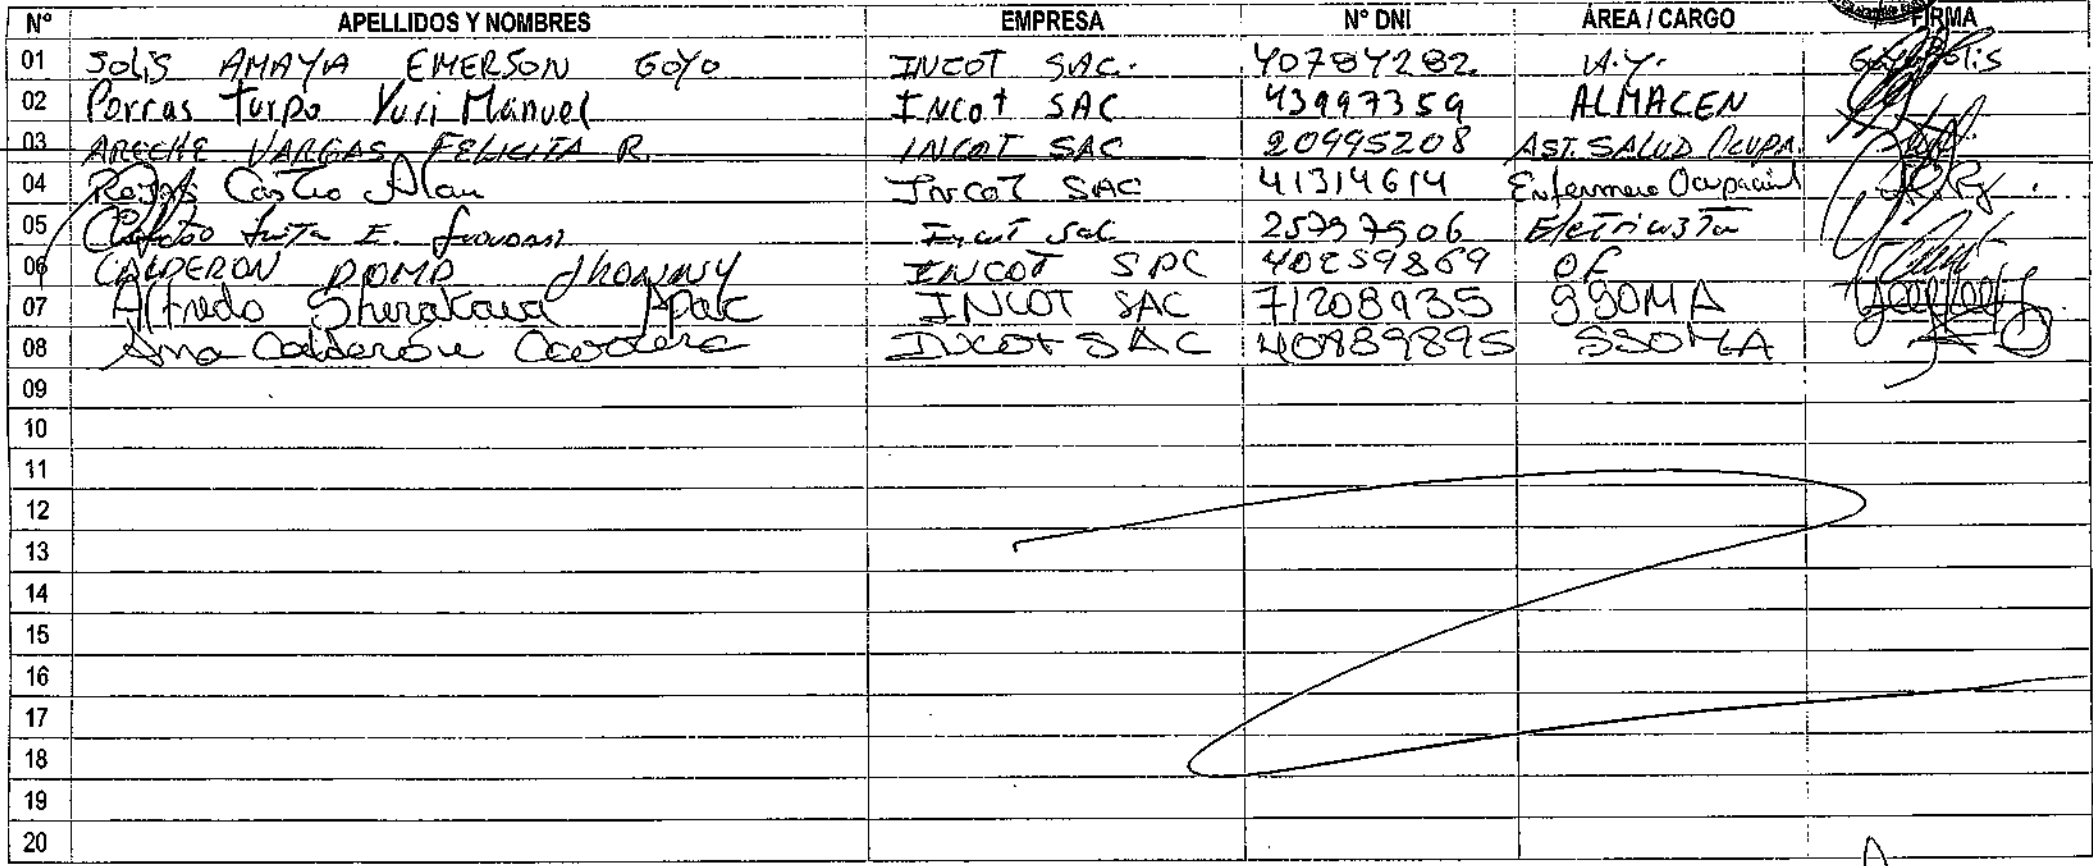 Nº APELLIDOS Y NOMBRES EMPRESA Nº DNI ÁREA / CARGO FIRMA
01 SOLIS AMAYA EMERSON GOYO INCOT SAC. 40784282 A.Y.
02 Porras Turpo Yuri Manuel INCOT SAC 43997359 ALMACEN
03 ARECHE VARGAS FELICITA R. INCOT SAC 20995208 AST. SALUD OCUPA.
04 Rojas Castro Alan INCOT SAC 41314614 Enfermero Ocupacional
05 E. Incot Sac 25797506 Eletricista
06 CALDERON POMA JHONNY INCOT SAC 40259869 OF
07 Alfredo Apac INCOT SAC 71208935 SSOMA
08 Ana Calderón INCOT SAC 40889895 SSOMA
09
10
11
12
13
14
15
16
17
18
19
20